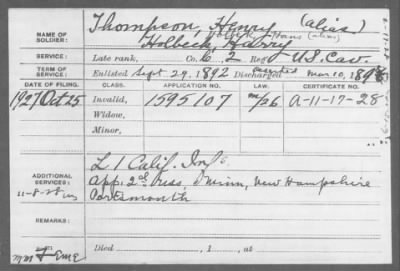 NAME OF SOLDIER: Thompson, Henry (alias)
Holbeck, Harry
Hans (alias)
SERVICE: Late rank, Co. C, 2 Reg't U.S. Cav.
TERM OF SERVICE: Enlisted Sept 29, 1892 Discharged deserted Mar 10, 189
DATE OF FILING. CLASS. APPLICATION NO. LAW. CERTIFICATE NO.
1927 Oct 25 Invalid, 1595107 A-11-17-28
Widow,
Minor,
L 1 Calif. Inf.
ADDITIONAL SERVICES: App. 2d U.S.S. New Hampshire
11-8-28 Portsmouth
REMARKS:
Died , 1 , at